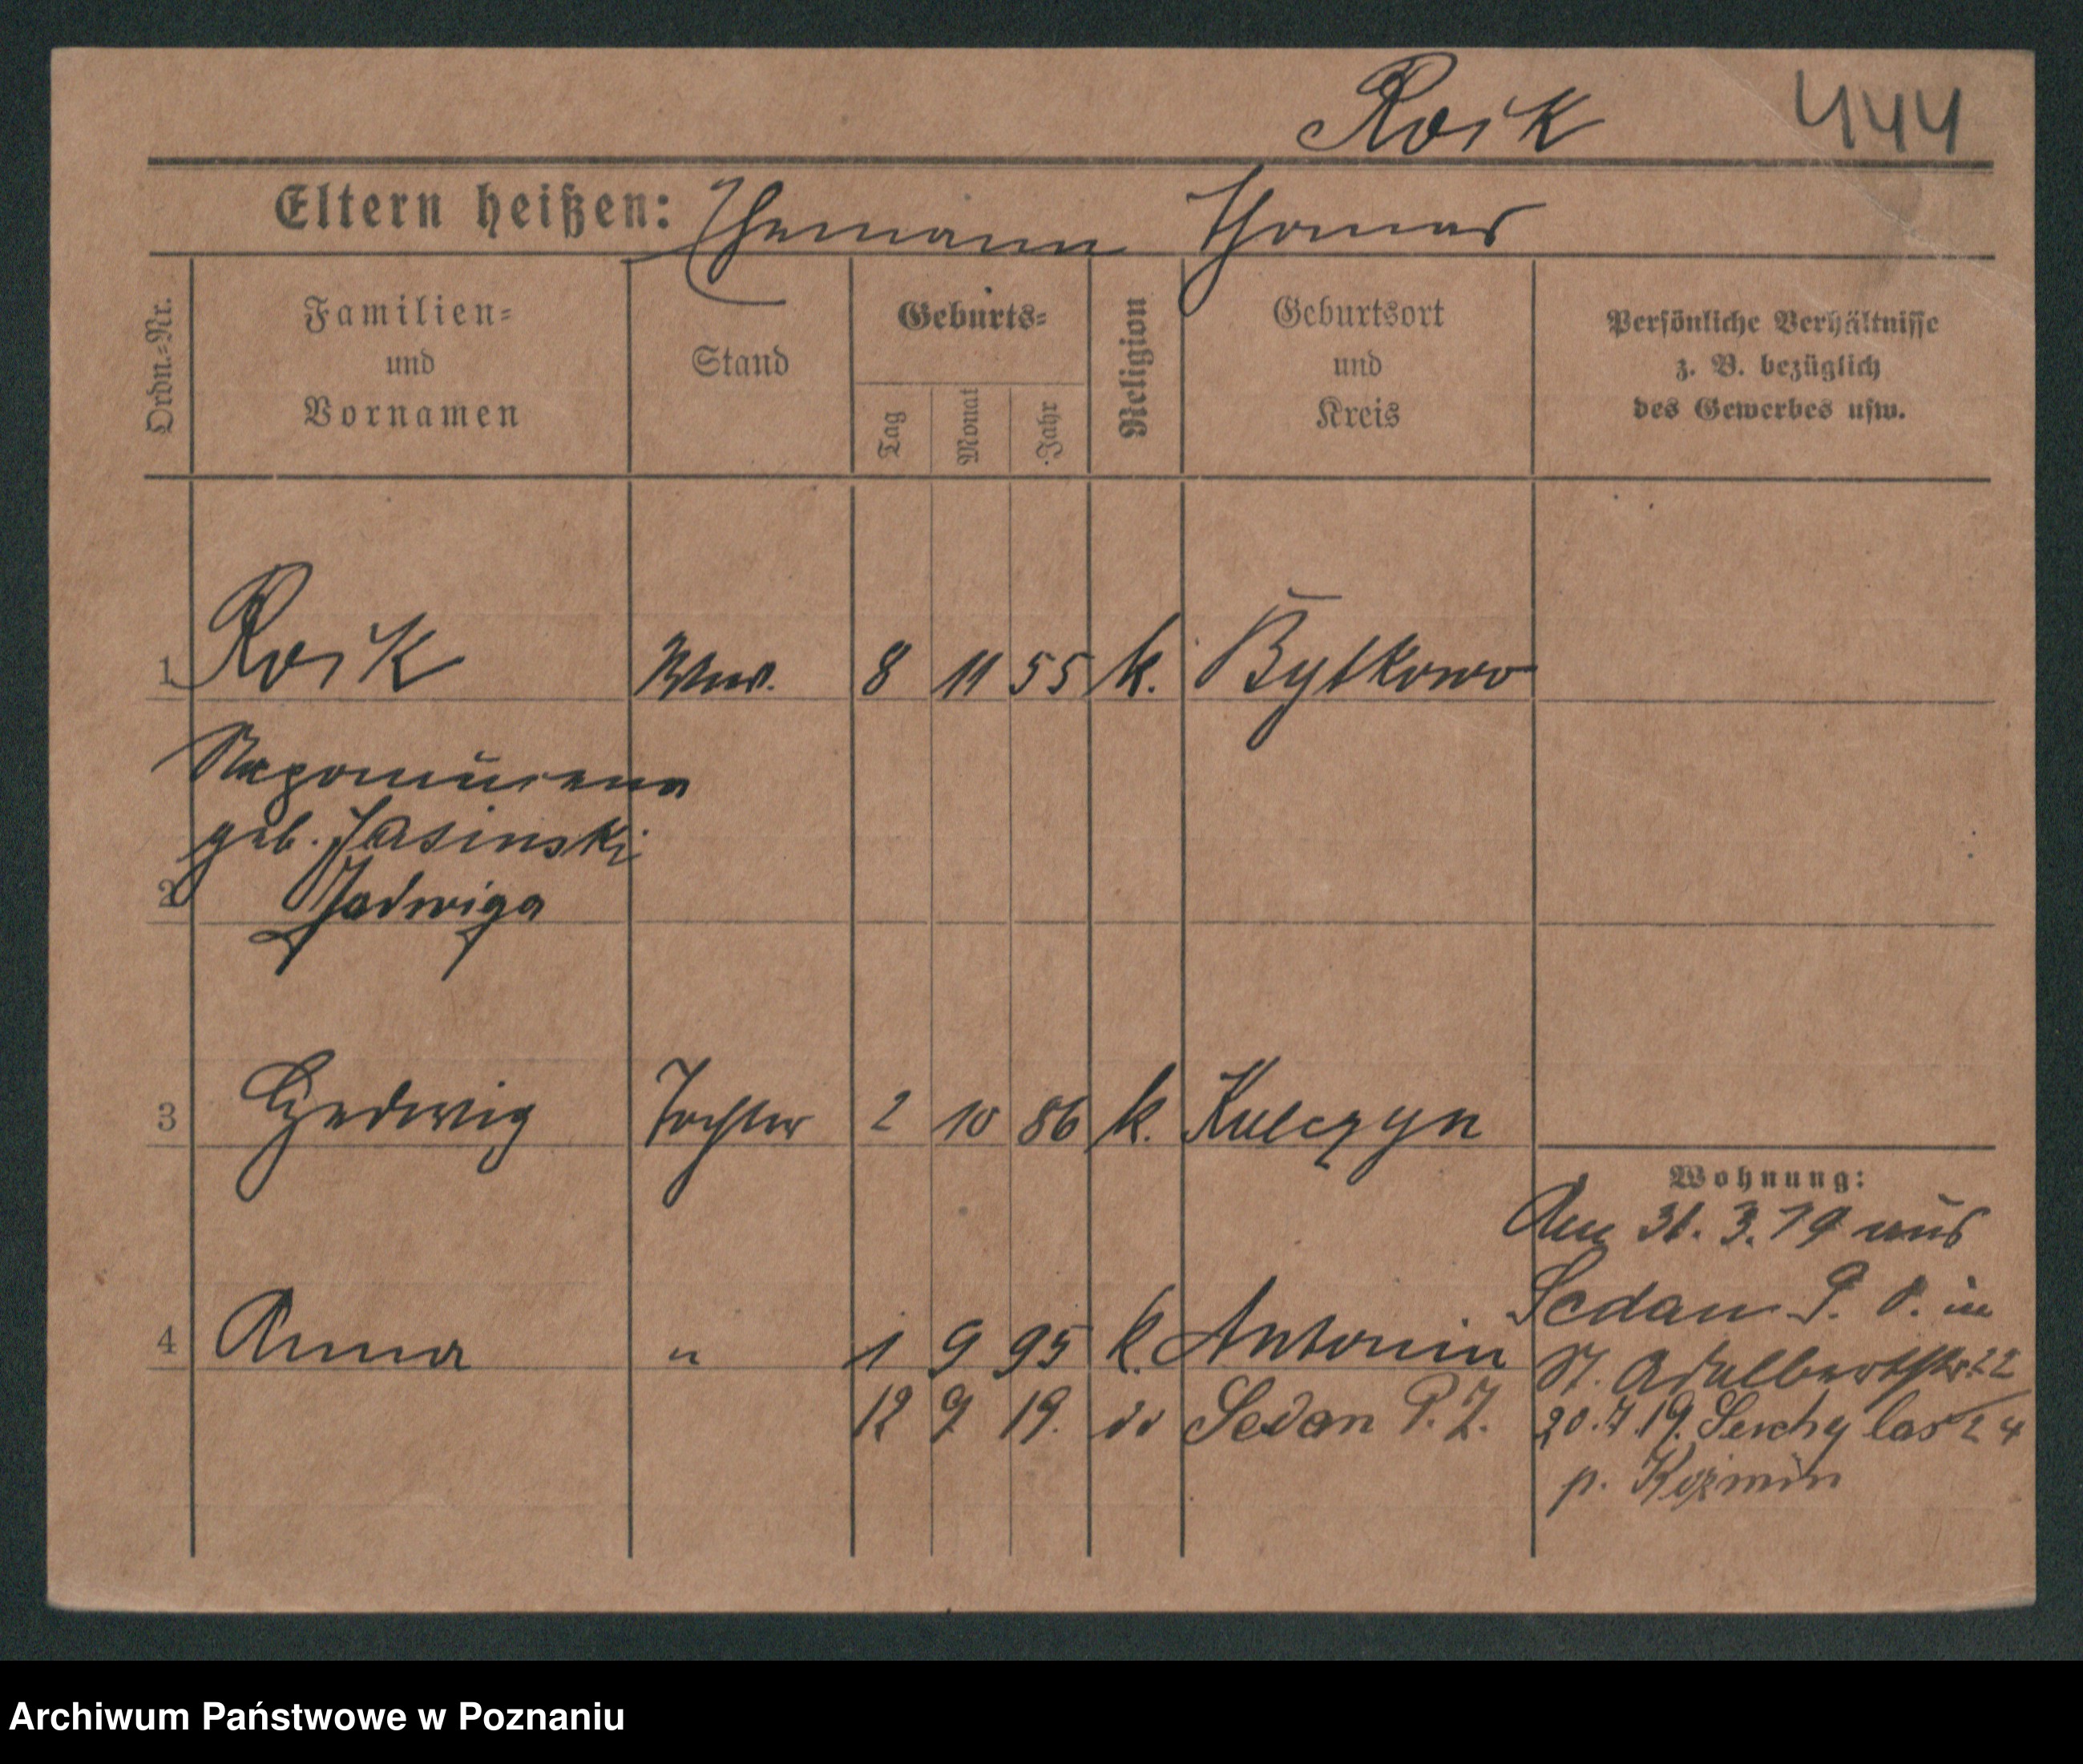 Roik 444
Eltern heißen: Thomas
Ordn.-Nr.
Familien-
und
Vornamen
Stand
Geburts-
Tag
Monat
Jahr
Religion
Geburtsort
und
Kreis
Persönliche Verhältnisse
z. B. bezüglich
des Gewerbes usw.
1 Roik Wwe. 8 11 55 k. Bytkowo
Nepomucena
geb. Jasinski
2 Jadwiga
3 Hedwig Tochter 2 10 86 k. Kulczyn
Wohnung:
Am 31. 3. 19 aus
Sedan P. P. in
4 Anna " 1 9 95 k. Antonin St. Adalbertstr. 22
12 9 19. do Sedan P. 20. 7. 19. las 24
p. Kozmin
Archiwum Państwowe w Poznaniu